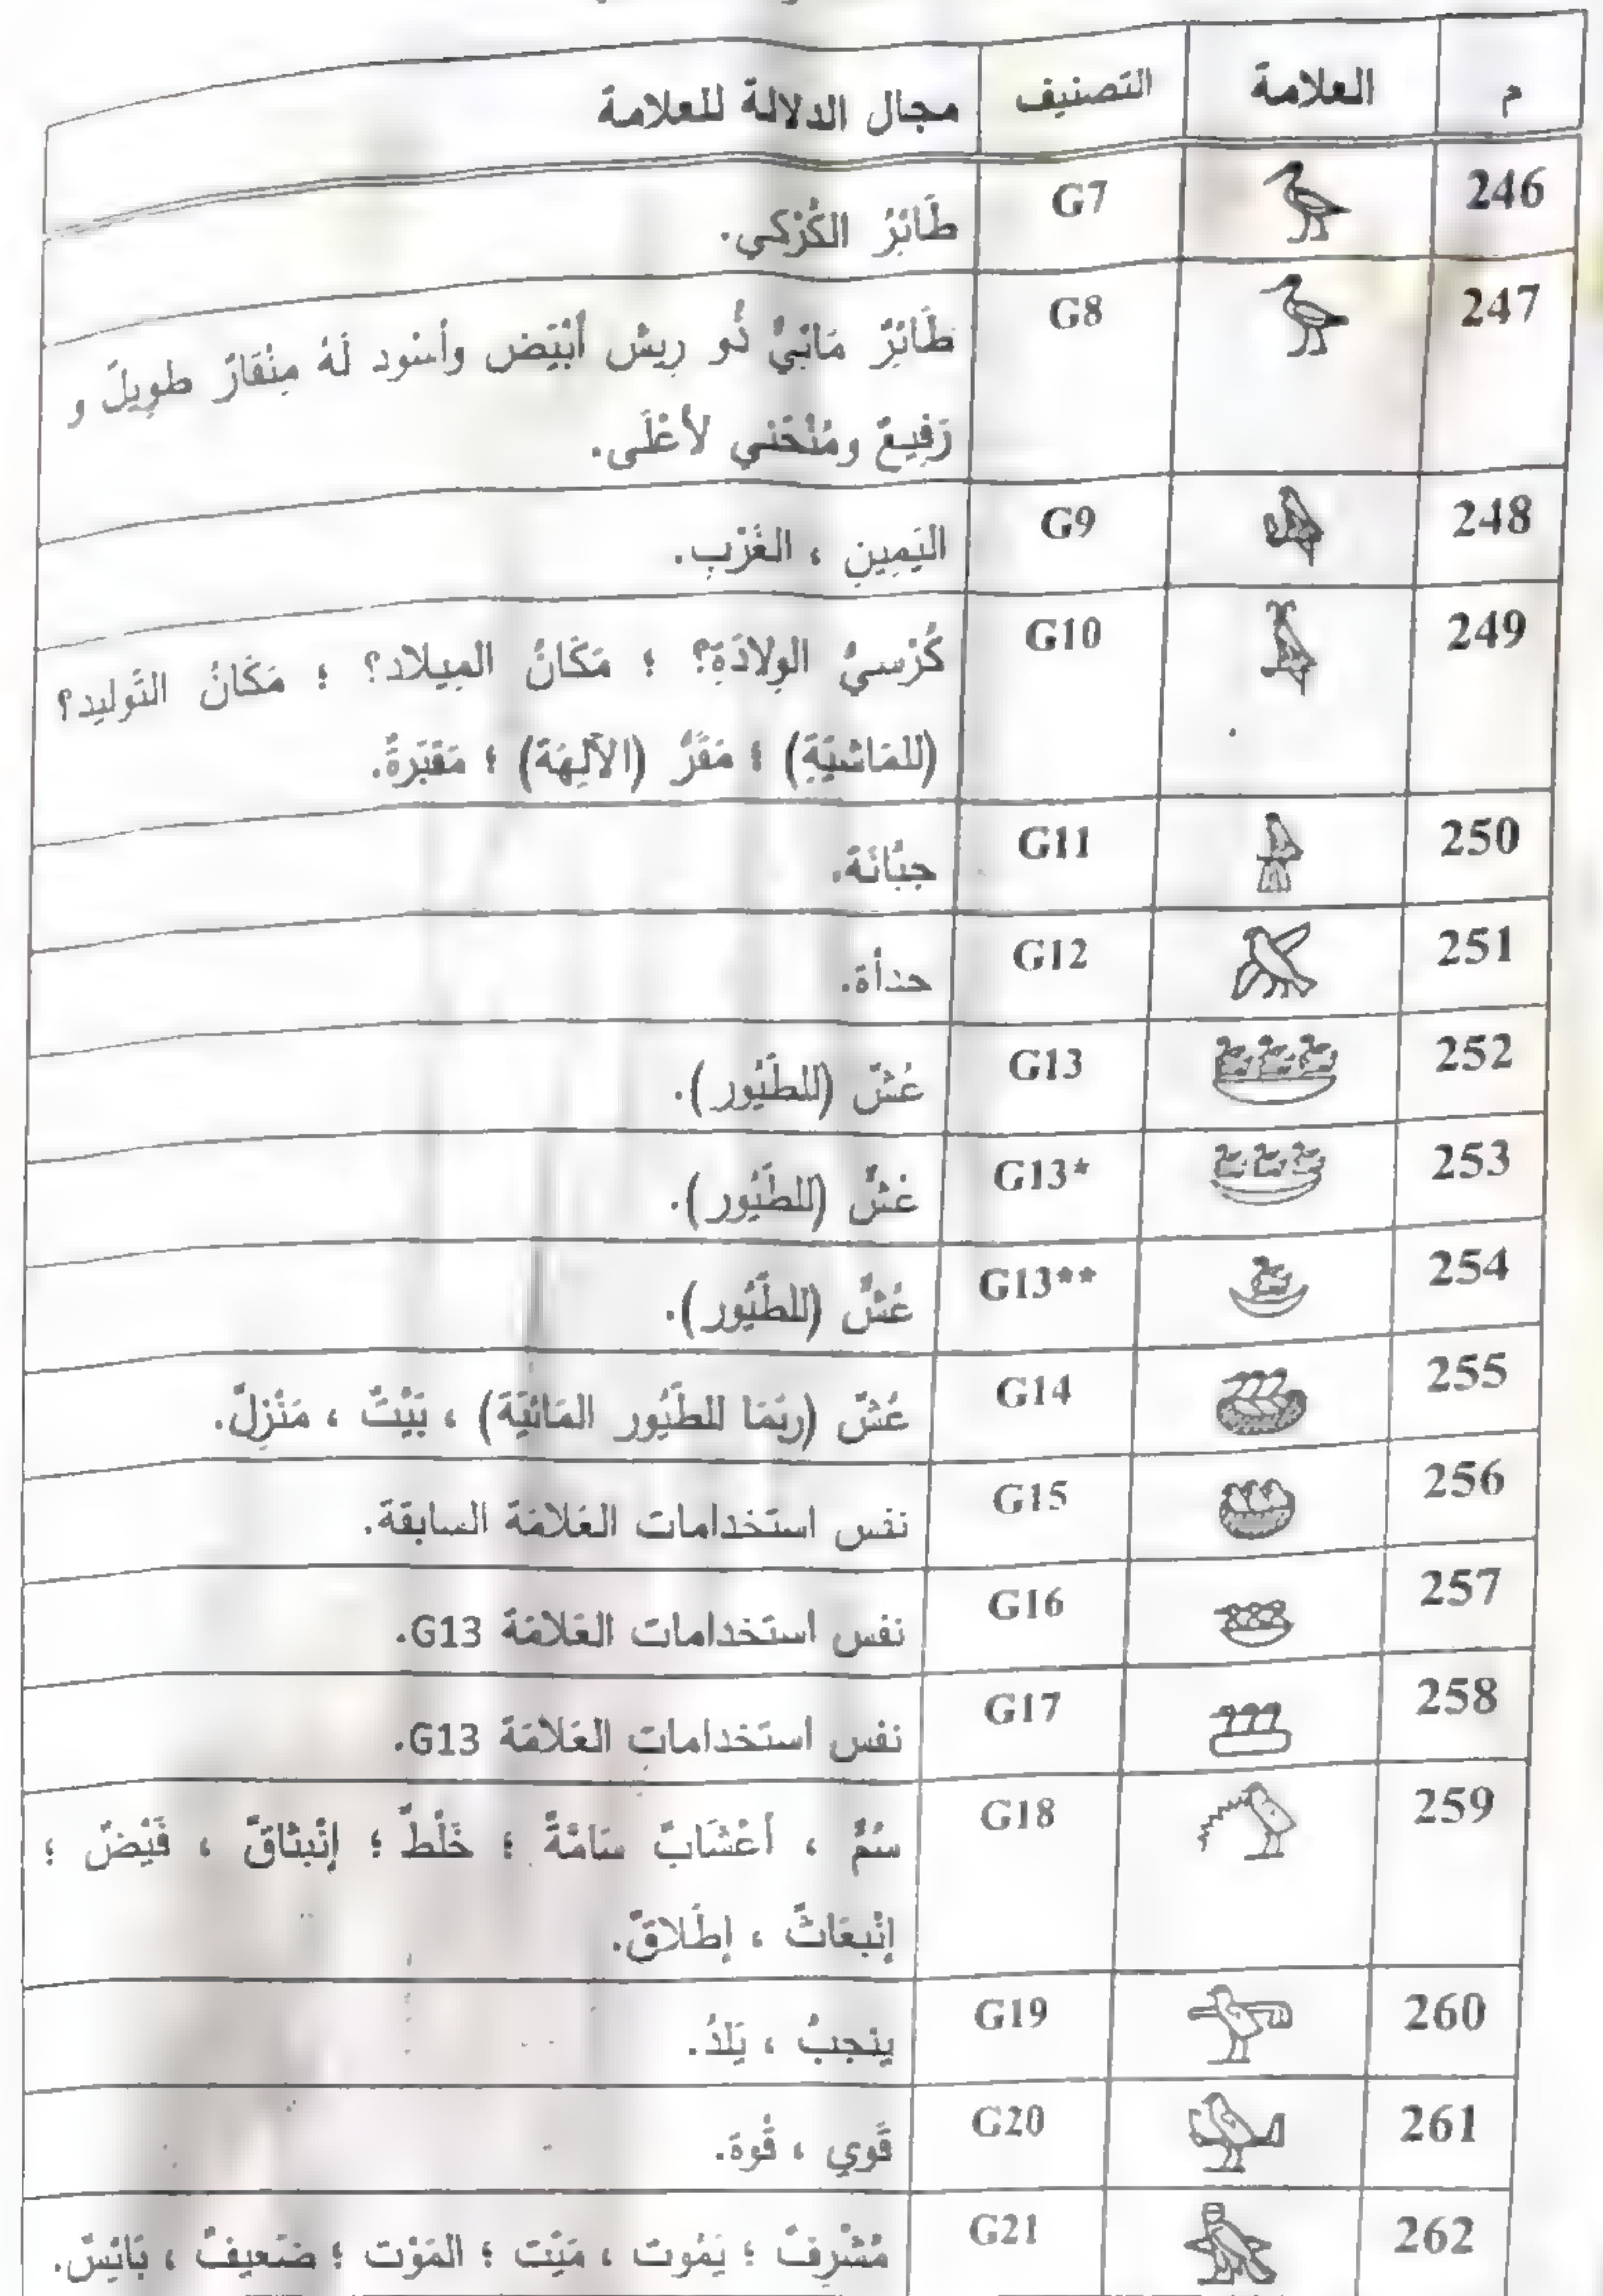 م العلامة التصنيف مجال الدلالة للعلامة
246 G7 طَائرُ الكُرْكي.
247 G8 طَائرٌ مَائيٌّ ذُو رِيش أبْيَض وأسْود لَهُ مِنْقَارٌ طويلَ و
رَفِيعٌ ومُنْحَني لأعْلَى.
248 G9 اليَمِينِ ، الغَرْبِ.
249 G10 كُرْسيُّ الوِلادَةِ؟ ؛ مَكَانُ المِيلاد؟ ؛ مَكَانُ التَّوليد؟
(للمَاشيَةِ) ؛ مَقَرُّ (الآلِهَة) ؛ مَقبَرةٌ.
250 G11 جبَّانَة.
251 G12 حدأة.
252 G13 عُشّ (للطُيُور).
253 G13* عُشّ (للطُيُور).
254 G13** عُشّ (للطُيُور).
255 G14 عُشّ (ربَمَا للطُيُور المَائيَة) ، بَيْتٌ ، مَنْزِلٌ.
256 G15 نفس استخدامات العَلامَة السابقة.
257 G16 نفس استخدامات العَلامَة G13.
258 G17 نفس استخدامات العَلامَة G13.
259 G18 سُمٌّ ، أعْشَابٌ سَامَّةٌ ؛ خَلْطٌ ؛ إنْبثاقٌ ، فَيْضٌ ؛
إنْبعَاثٌ ، إطْلاقٌ.
260 G19 ينجبُ ، يَلدُ.
261 G20 قَوي ، قُوة.
262 G21 مُشْرِفٌ ؛ يَمُوت ، مَيْت ؛ المَوْت ؛ ضَعيفٌ ، بَائِسٌ.